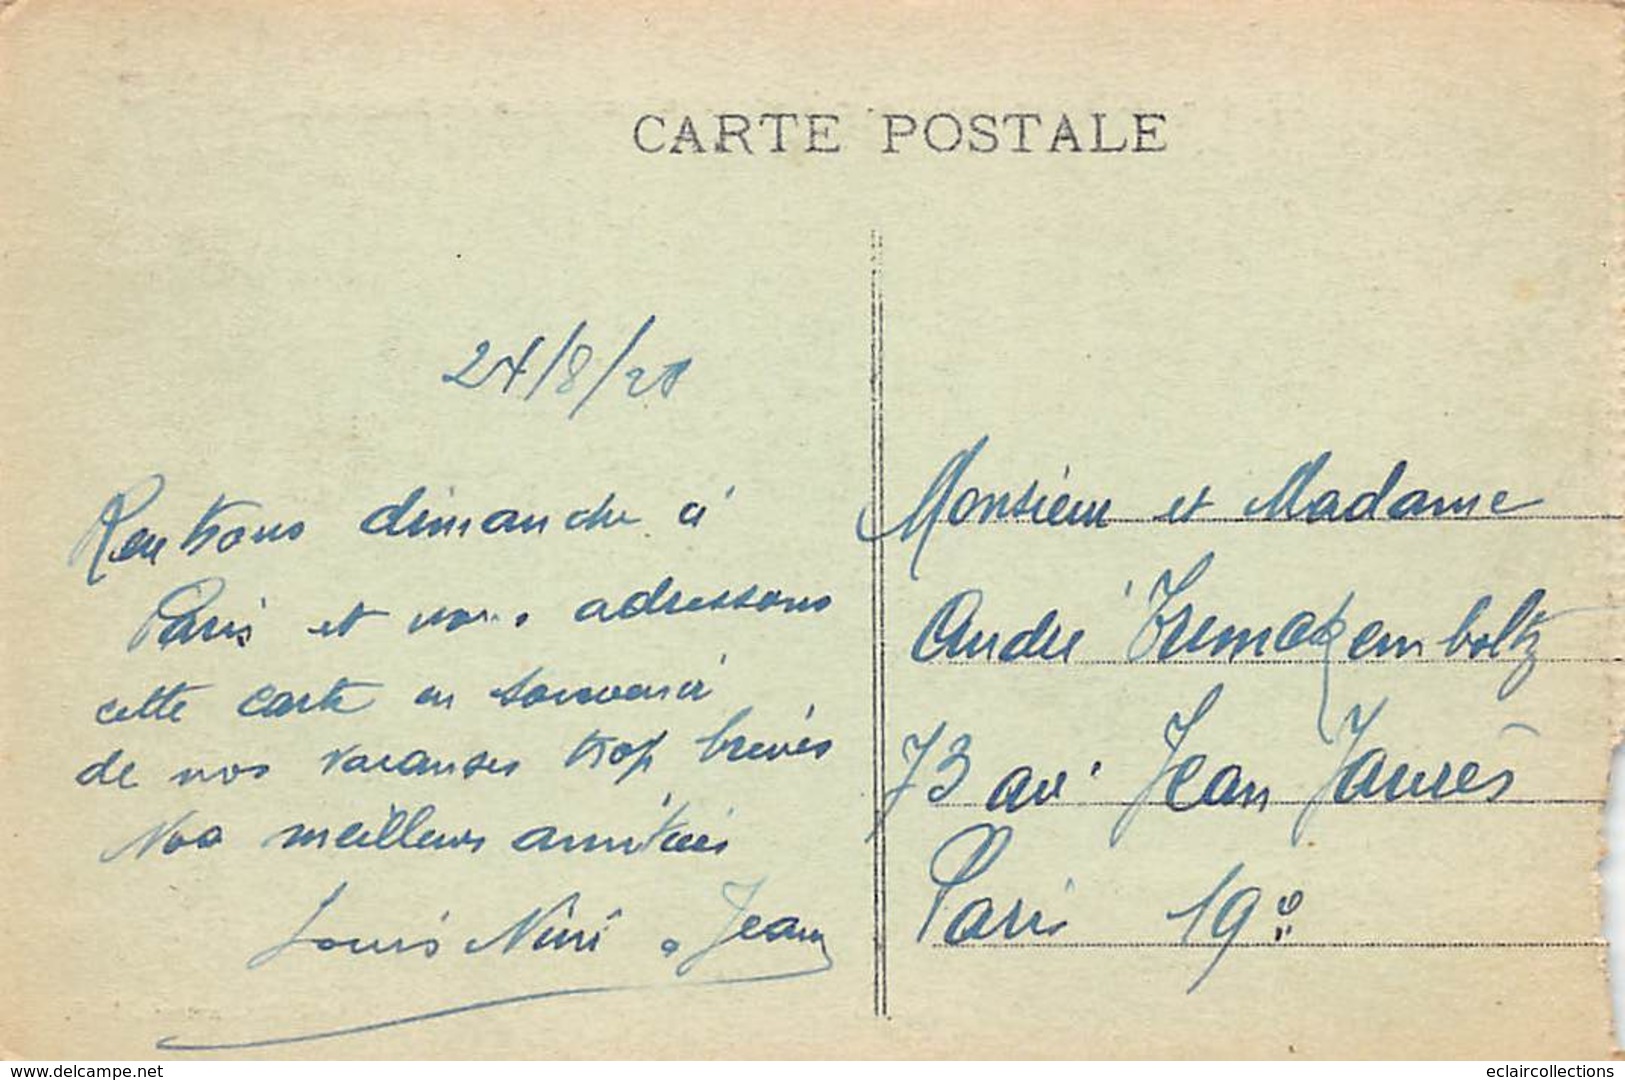 CARTE POSTALE
24/8/28
Rentrons dimanche à
Paris et vous adressons
cette carte en souvenir
de nos vacanses trop brèves
Nos meilleurs amitiés
Louis Nini & Jean
Monsieur et Madame
André
73 av. Jean Jaurès
Paris 19e
www.delcampe.net
eclaircollections